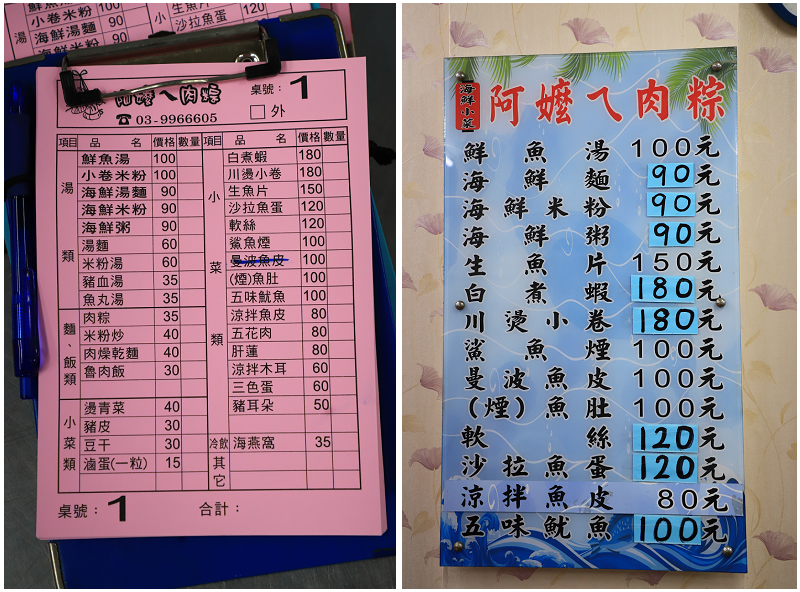 湯
小卷米粉 90
海鮮湯麵 90
海鮮米粉
生魚片
沙拉魚蛋 120
阿嬤ㄟ肉粽
☎03-9966605
桌號：1
□外
項目 品名 價格 數量 項目 品名 價格 數量
湯類
鮮魚湯 100
小卷米粉 100
海鮮湯麵 90
海鮮米粉 90
海鮮粥 90
湯麵 60
米粉湯 60
豬血湯 35
魚丸湯 35
麵、飯類
肉粽 35
米粉炒 40
肉燥乾麵 40
魯肉飯 30
小菜類
燙青菜 40
豬皮 30
豆干 30
滷蛋(一粒) 15
小菜類
白煮蝦 180
川燙小卷 180
生魚片 150
沙拉魚蛋 120
軟絲 120
鯊魚煙 100
曼波魚皮 100
(煙)魚肚 100
五味魷魚 100
涼拌魚皮 80
五花肉 80
肝蓮 80
涼拌木耳 60
三色蛋 60
豬耳朵 50
冷飲 海燕窩 35
其它
桌號：1 合計：
海鮮小菜
阿嬤ㄟ肉粽
鮮魚湯 100元
海鮮麵 90元
海鮮米粉 90元
海鮮粥 90元
生魚片 150元
白煮蝦 180元
川燙小卷 180元
鯊魚煙 100元
曼波魚皮 100元
(煙)魚肚 100元
軟絲 120元
沙拉魚蛋 120元
涼拌魚皮 80元
五味魷魚 100元